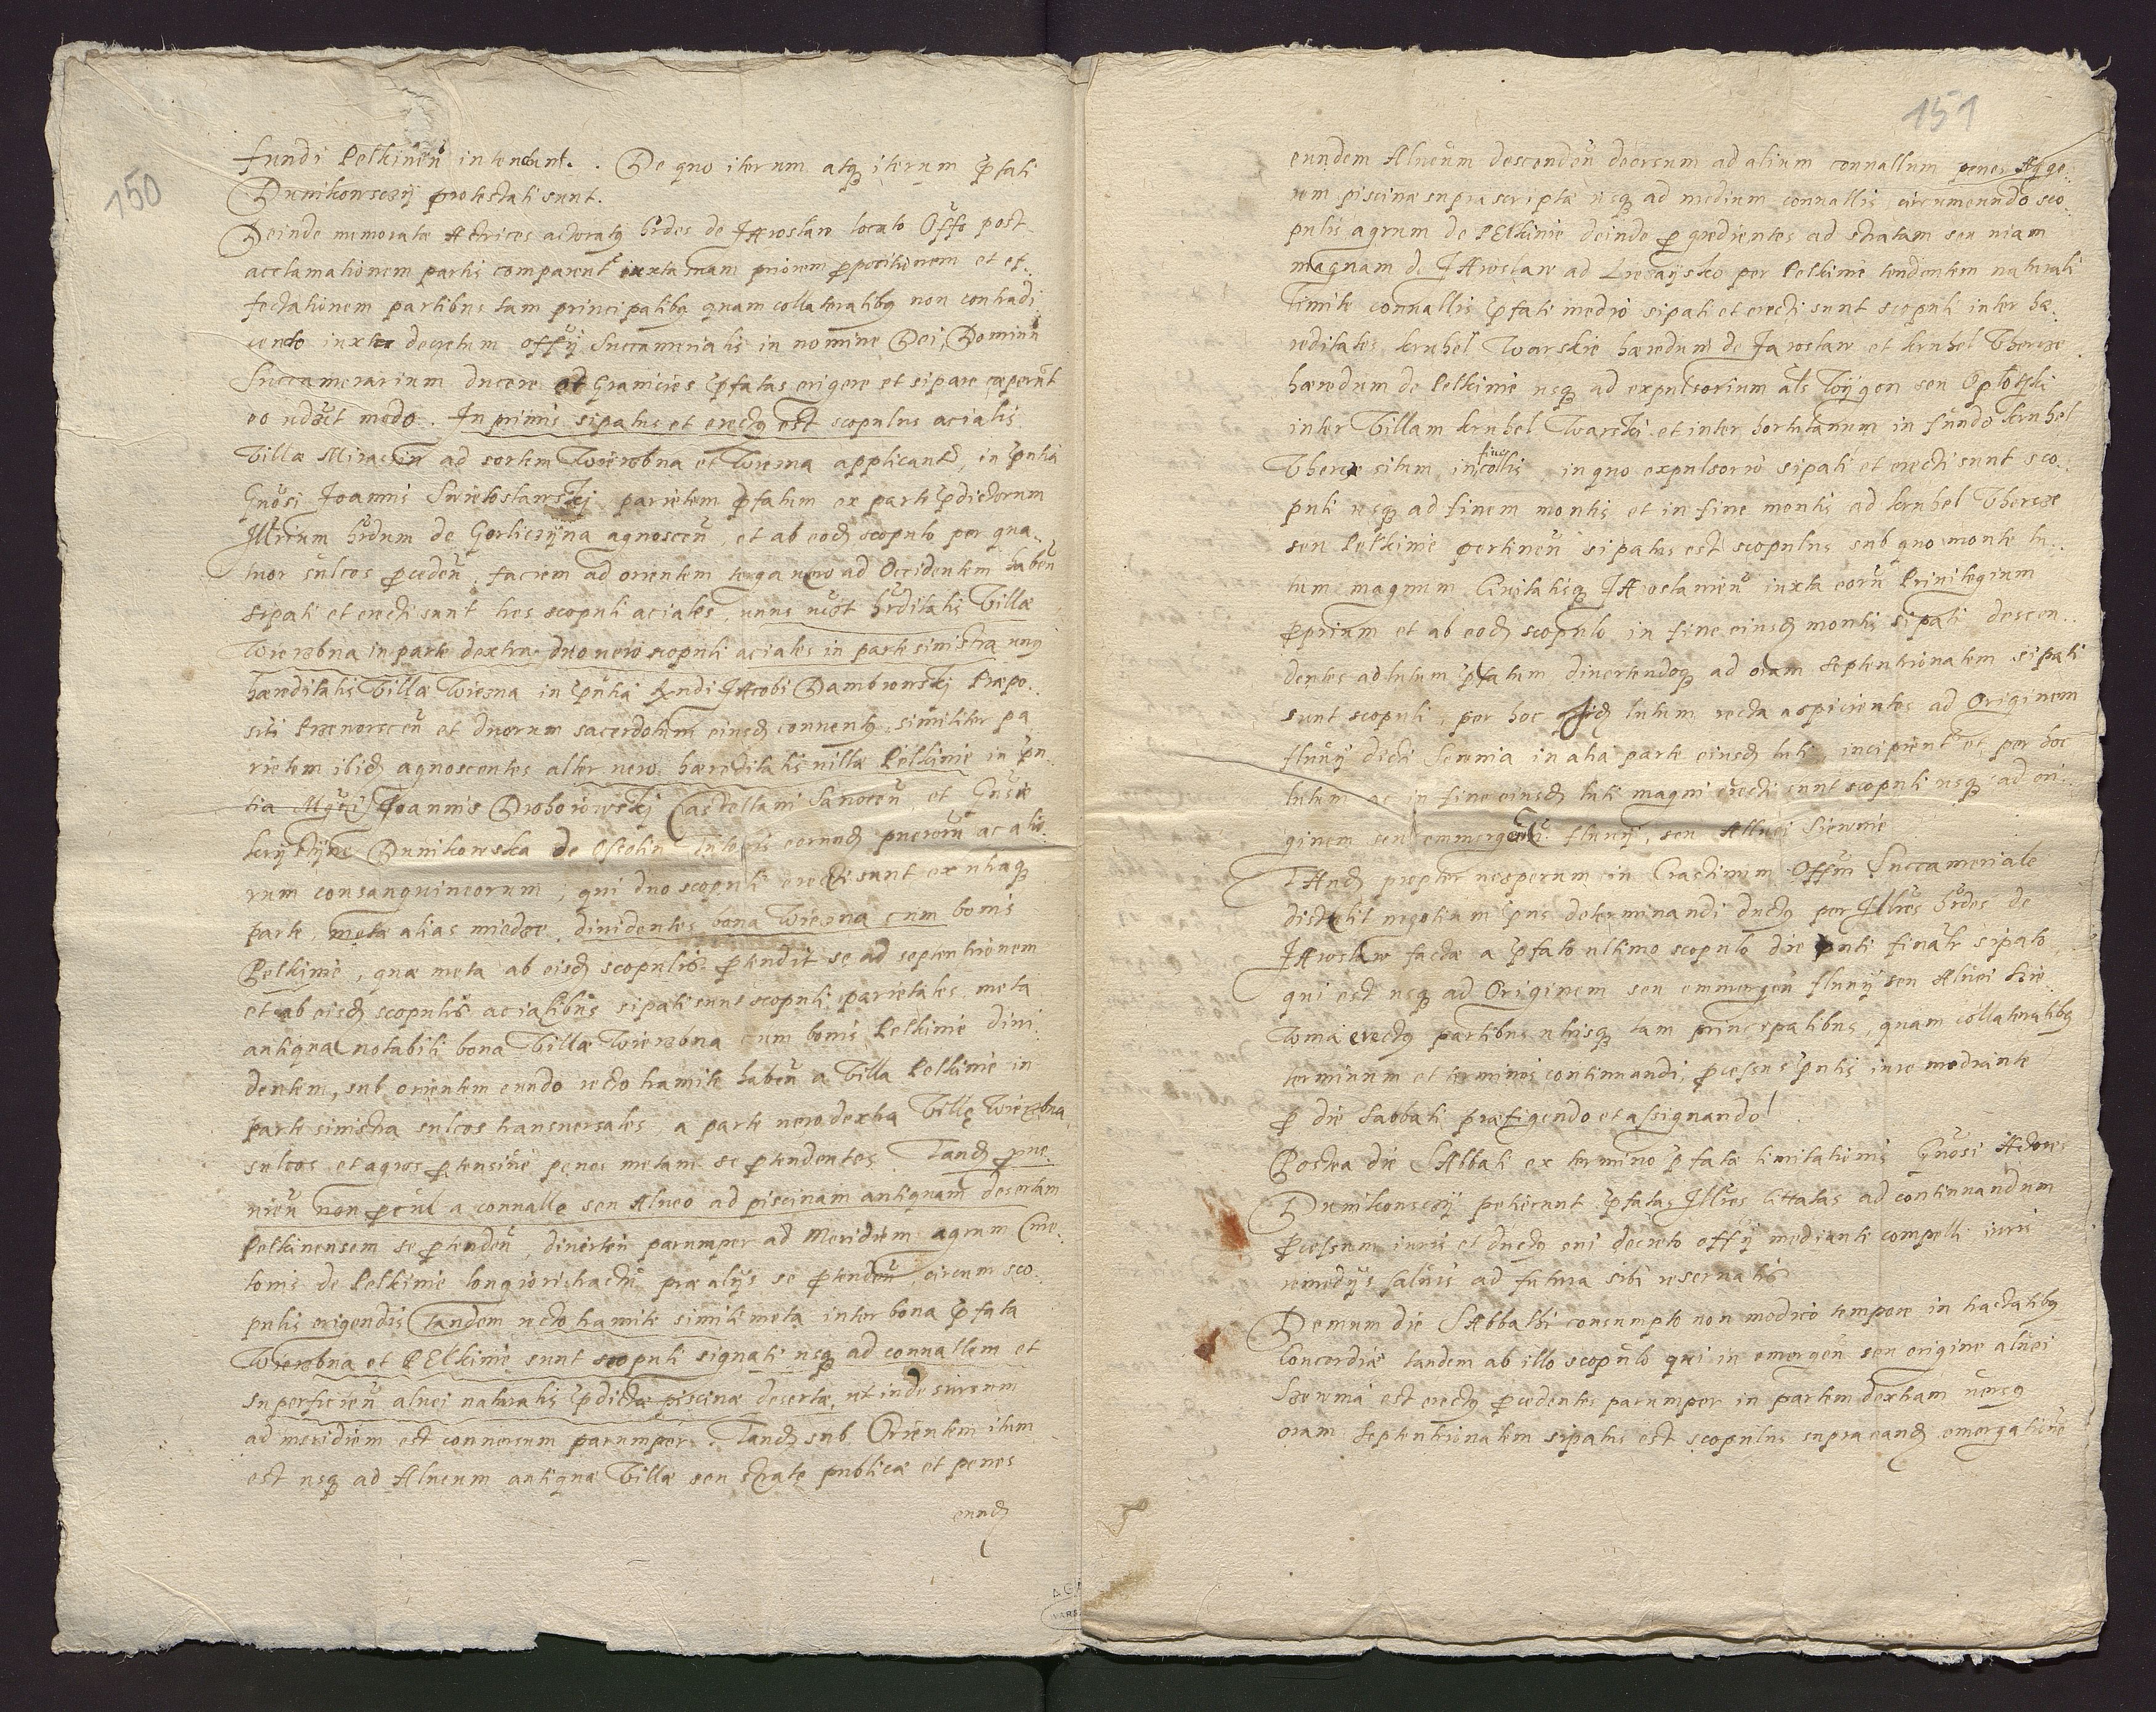 150
fundi Pelkinen̄ intendunt. . De quo iterum atq₃ iterum p̄fati
Dunikowsczÿ protestati sunt.
Deinde memoratæ Actrices actoratq₃ hrdes de JAroslaw locato Offo post
acclamationem partis comparent iuxta suam priorem propositionem et ef-
fectationem partibus tam principalibq₃ quam collateralibq₃ non contradi
cendo iuxta decretum offÿ Succamerialis in nomine Dei, Dominū
Succamerarium ducere et Granicies p̄fatas erigere et sipare cœperūt
eo modo. In primis sipatus et erectq₃ est scopulus acialis
Villæ Miraczin ad sortem Wierzbna et Wiezna applicantd, in p̄ntia
Gnōsi Joannis Swietoslawskj parietem p̄fatum ex parte p̄dictorum
Jllrium hrdum de Gorliczÿna agnoscen̄, et ab eod₃ scopulo per qua-
tuor sulcos proceden̄, faciem ad orientem terga vero ad Occidentem haben̄
sipati et erecti sunt tres scopuli aciales, unus hrditatis Villæ
Wierzbna in parte dextra, duo vero scopuli aciales in parte sinistra unq₃
hæreditatis Villæ Wiezna in p̄ntia Rndi JAcobi Dambrowskj Præpo-
siti Przeworscen̄ et duorum sacerdotum eiusd₃ conventq₃, similiter pa
rietem ibid₃ agnoscentes alter vero hæreditatis villæ Pelkinie in p̄n-
tia Joannis Drohoiowskj Castellani Sanocen̄, et
Dunikowska de tutoris eorund₃ puerorū ac alio-
rum consanguineorum; qui duo scopuli erecti sunt ex utraq₃
parte, metæ alias miedze, dividentes bona Wiezna cum bonis
Pelkinie, quæ meta ab eisd₃ scopulis protendit se ad septentrionem
et ab eisd₃ scopulis acialibus sipati sunt scopuli parietales meta
antiqua notabili bona Villæ Wierzbna cum bonis Pelkinie divi-
dentem, sub orientem eundo recto tramite haben̄ a Villa Pelkinie in
parte sinistra sulcos transversales, a parte vero dextra Villę Wierzbna
sulcos et agros protensive penes metam se protendentes. Tand₃ prve-
nien̄ non procul a convalle seu Alveo ad piscinam antiquam desertam
Pelkinensem se protenden̄, diverten parumper ad Meridiem agrum Cme-
tonis de Pelkinie longiori tractu præ alÿs se protenden̄, circum sco-
pulis erigendis tandem recto tramite simili meta inter bona p̄fata
Wierzbna et PElkinie sunt scopuli signati usq₃ ad convallem et
superficien̄ alvei naturalis p̄dictæ piscinæ desertæ, ut inde sursum
ad meridiem est conversum parumper. Tand₃ sub Orientem itum
est usq₃ ad Alveum antiquæ Villæ seu stratę publicæ et penes
eund₃
151
eundem Alveum descenden̄ deorsum ad alium convallum penes Agge-
rem piscinæ suprascriptæ usq₃ ad medium convallis, circumeundo sco-
pulis agrum de PElkinie deinde progredientes ad stratam seu viam
magnam de JAroslaw ad Liezaÿsko per Pelkinie tendentem naturali
limite convallis p̄fati medio sipati et erecti sunt scopuli inter hæ-
reditates kruhel Warskie hæredum de Jaroslaw et kruhel Vhercze
hæredum de Pelkinie usq₃ ad expulsorium als Wÿgon seu Oplotki
inter Villam kruhel Warskj et inter hortulanum in fundo kruhel
Vhercze situm, in collis, in quo expulsorio sipati et erecti sunt sco-
puli usq₃ ad finem montis et in fine montis ad kruhel Vhercze
seu Pelkinie pertinen̄ sipatus est scopulus sub quo monte lu-
tum magnum Civitatisq₃ JAroslavien̄ iuxta eorū Privilegium
proprium et ab eod₃ scopulo in fine eiusd₃ montis sipati descen-
dentes ad lutum p̄fatum divertendoq₃ ad oram septentrionalem sipati
sunt scopuli, per hoc lutum recta aspicientes ad Originem
fluvÿ dicti Sewnia in alia parte eiusd₃ luti, incipient et per hoc
lutum ac in fine eiusd₃ luti magni erecti sunt scopuli usq₃ ad ori-
ginem seu emmergen̄ fluvÿ, seu Allvei Siewnie
TAnd₃ propter vesperum in Crastinum Offm Succameriale
distulit negotium pns determinandi ductq₃ per Jllres hrdes de
JAroslaw factæ a p̄fato ultimo scopulo die pnti finalr sipato
qui est usq₃ ad Originem seu emmergen̄ fluvÿ seu Alvei Sie
wnia erectq₃ partibus utrisq₃ tam principalibus, quam collateralibq₃
terminum et terminos continuandi, processus pntis iure mediante
pro die Sabbati præfigendo et assignando.
Postea die SAbbati ex termino p̄fatæ limitationis Gnōsi Actores
Dunikowsczÿ petierunt p̄fatas Jllres Cittatas ad continuandum
processum iuris et ductq₃ sui decreto offÿ mediante compelli iuris
remedÿs salvis ad futura sibi reservatis
Demum die SAbbathi consumpto non modico tempore in tractatibq₃
Concordiæ tandem ab illo scopulo qui in emergen̄ seu origine alvei
Szewnia est erectq₃ procedentes parumper in partem dextram versq₃
oram septentrionalem sipatus est scopulus supra eand₃ emergatione